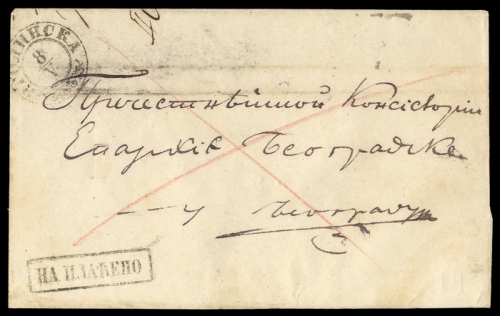 8
Пречестнѣйшой Консисторіи
Епархіе Београдске
у Београду
НА ПЛАЋЕНО